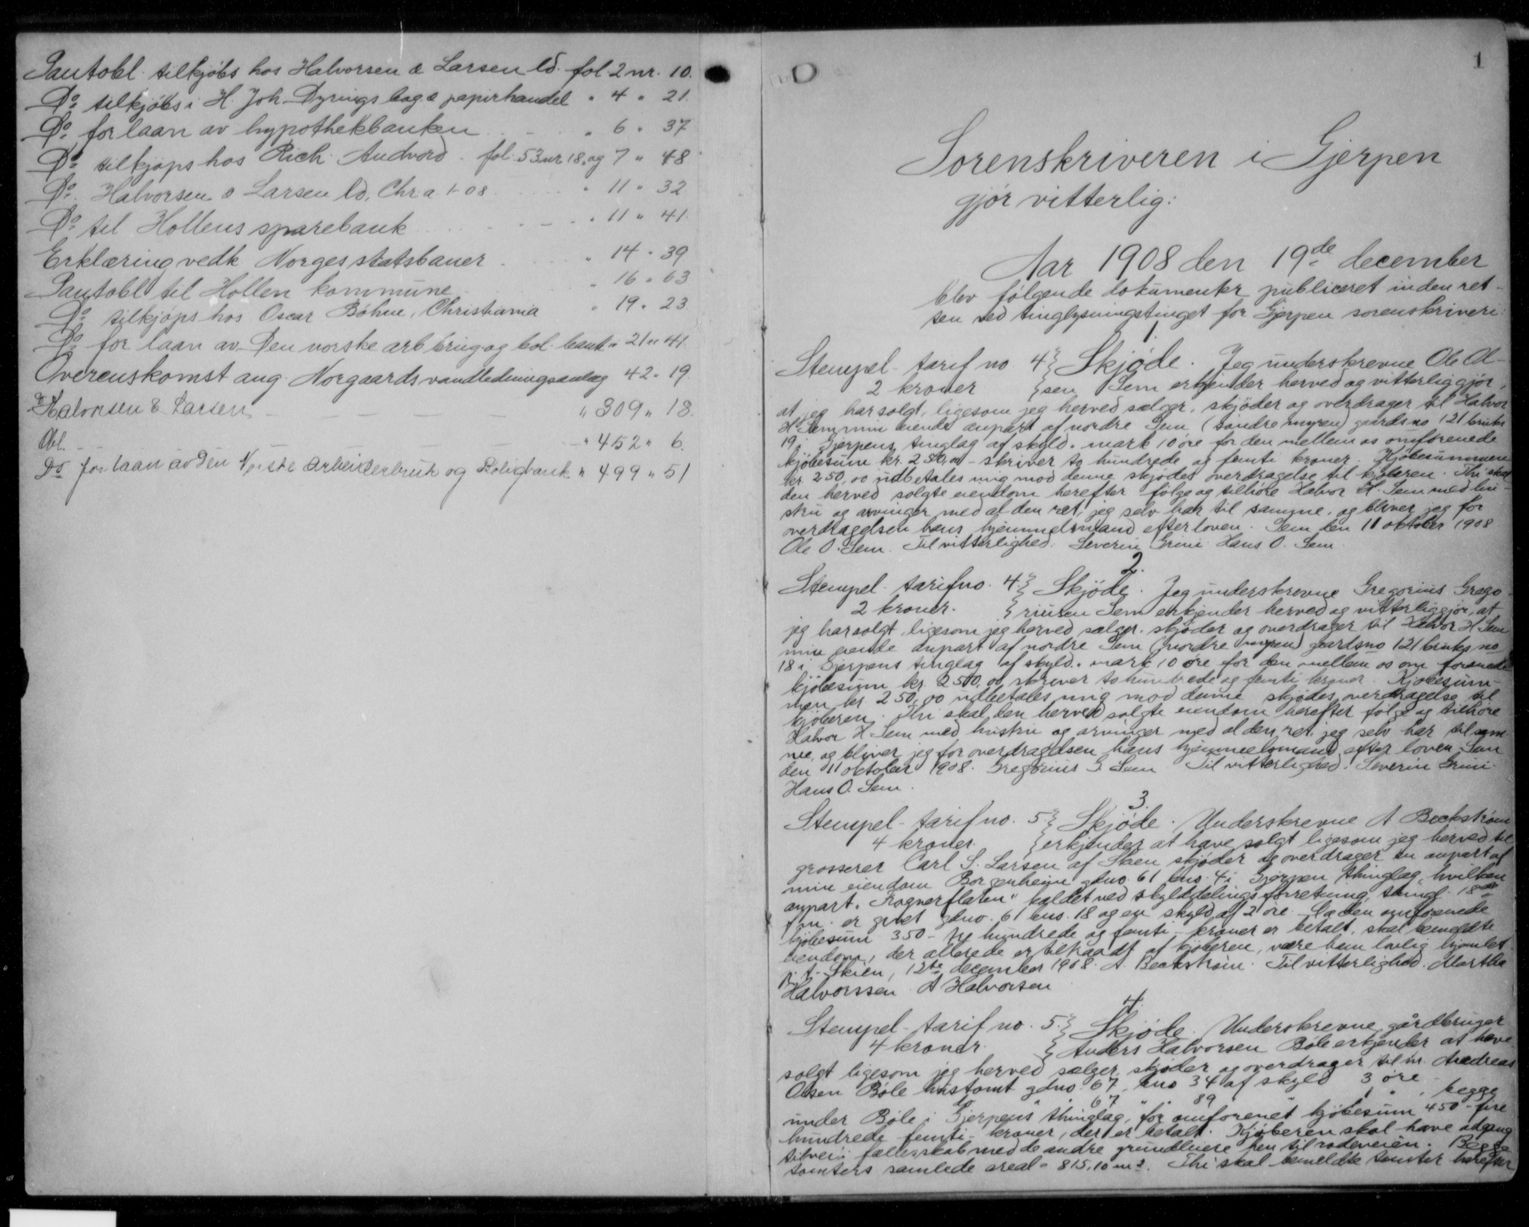 Pantobl. tilkjøbs hos Halvorsen & Larsen ld. fol 2 nr. 10.
Do tilkjøbs i H Joh. Dyrings bog & papirhandel " 4 " 21
Do for laan av hypothekbanken " 6 " 37
Do tilkjøps hos Rich. Andvord. fol. 53 nr 18, og 7 " 48
Do Halvorsen & Larsen ld, Chr.a 1-08 " 11 " 32
Do til Hollens sparebank " 11 " 41
Erklæring vedk Norges statsbaner " 14 " 39
Pantobl til Hollen kommune " 16 " 63
Do tilkjøps hos Oscar Bøhne, Christiania " 19 " 23
Do for laan av Den norske arb.brug og bol. bank " 21 " 41
Overenskomst ang. Norgaards vandledningsanlæg 42 " 19
Do Halvorsen & Larsen " 309 " 13
Obl. " 452 " 6
Do for laan av Den Norske Arbeiderbruk og Boligbank " 499 " 51
1
Sorenskriveren i Gjerpen
gjør vitterlig:
Aar 1908 den 19de december
blev følgende dokumenter publiceret inden ret-
ten ved tinglysningstinget for Gjerpen sorenskriveri:
1.
Stempel- tarif no 4 } Skjøde. Jeg underskrevne Ole Ol-
2 kroner } sen Sem erkjender herved og vitterliggjør,
at jeg har solgt, ligesom jeg herved sælger, skjøder og overdrager til Halvor
H. Sem min eiende anpart af nordre Sem (søndre myren) gaardsno 121 bruks
19 i Gjerpens tinglag af skyld. mark 10 øre for den mellem os omforenede
kjøbesum kr. 250,00 - skriver to hundrede og femti kroner. Kjøbesummen
kr 250,00 udbetales mig mod denne skjødes overdragelse til kjøberen. Thi skal
den herved solgte eiendom herefter følge og tilhøre Halvor H. Sem med hu-
stru og arvinger med al den ret, jeg selv har til samme, og bliver jeg for
overdragelsen hans hjemmelsmand efter loven. Sem den 11 oktober 1908
Ole O. Sem. Til vitterlighed. Severin Grini Hans O. Sem.
2.
Stempel- tarif no. 4 } Skjøde. Jeg underskrevne Gregorius Grego-
2 kroner. } riusen Sem erkjender herved og vitterliggjør, at
jeg har solgt, ligesom jeg herved sælger, skjøder og overdrager til Halvor H. Sem
min eiende anpart af nordre Sem (nordre myren) gaardsno 121 bruks no
18 i Gjerpens tinglag af skyld. mark 10 øre for den mellem os om forenede
kjøbesum kr. 250,00, skriver to hundrede og femti kroner. Kjøbesum-
men kr 250,00 udbetales mig mod denne skjødes overdragelse til
kjøberen. Thi skal den herved solgte eiendom herefter følge og tilhøre
Halvor H. Sem med hustru og arvinger med al den ret, jeg selv har til sam-
me, og bliver jeg for overdragelsen hans hjemmelsmand efter loven. Sem
den 11 oktober 1908. Gregorius G. Sem Til vitterlighed. Severin Grini
Hans O. Sem.
3.
Stempel- tarif no. 5 } Skjøde. Underskrevne A Beckstrøm
4 kroner } erkjender at have solgt ligesom jeg herved til
grosserer Carl S. Larsen af Skien skjøder og overdrager en anpart af
min eiendom Borgenheim gdno. 61 bno. 4 i Gjerpen thinglag, hvilken
anpart, "Kognerfloten" kaldet ved skylddelingsforretning, thingl. 18de
er givet gdno. 61 bno. 18 og en skyld af 2 øre. Da den omforenede
kjøbesum 350 - tre hundrede og femti - kroner er betalt, skal bemeldte
eiendom, der allerede er tiltraadt af kjøberen, være ham lovlig hjemlet.
p.t. Skien, 12te december 1908. A Beckstrøm. Til vitterlighed. Martha
Halvorssen A Halvorsen
4.
Stempel- tarif no. 5. } Skjøde. Underskrevne gårdbruger
4 kroner } Anders Halvorsen Bøle erkjender at have
solgt ligesom jeg herved sælger, skjøder og overdrager til hr. Andreas
Olsen Bøle hustomt gdno. 67, bno 34 af skyld 3 øre
" 67 " 89 1 " , begge
under Bøle i Gjerpens thinglag, for omforenet kjøbesum 450 - fire
hundrede femti - kroner, der er betalt. Kjøberen skal have adgang
til vei i fællesskab med de andre grundleiere hen til rodeveien. Begge
tomters samlede areal = 815,10 m2. Thi skal bemeldte tomter herefter